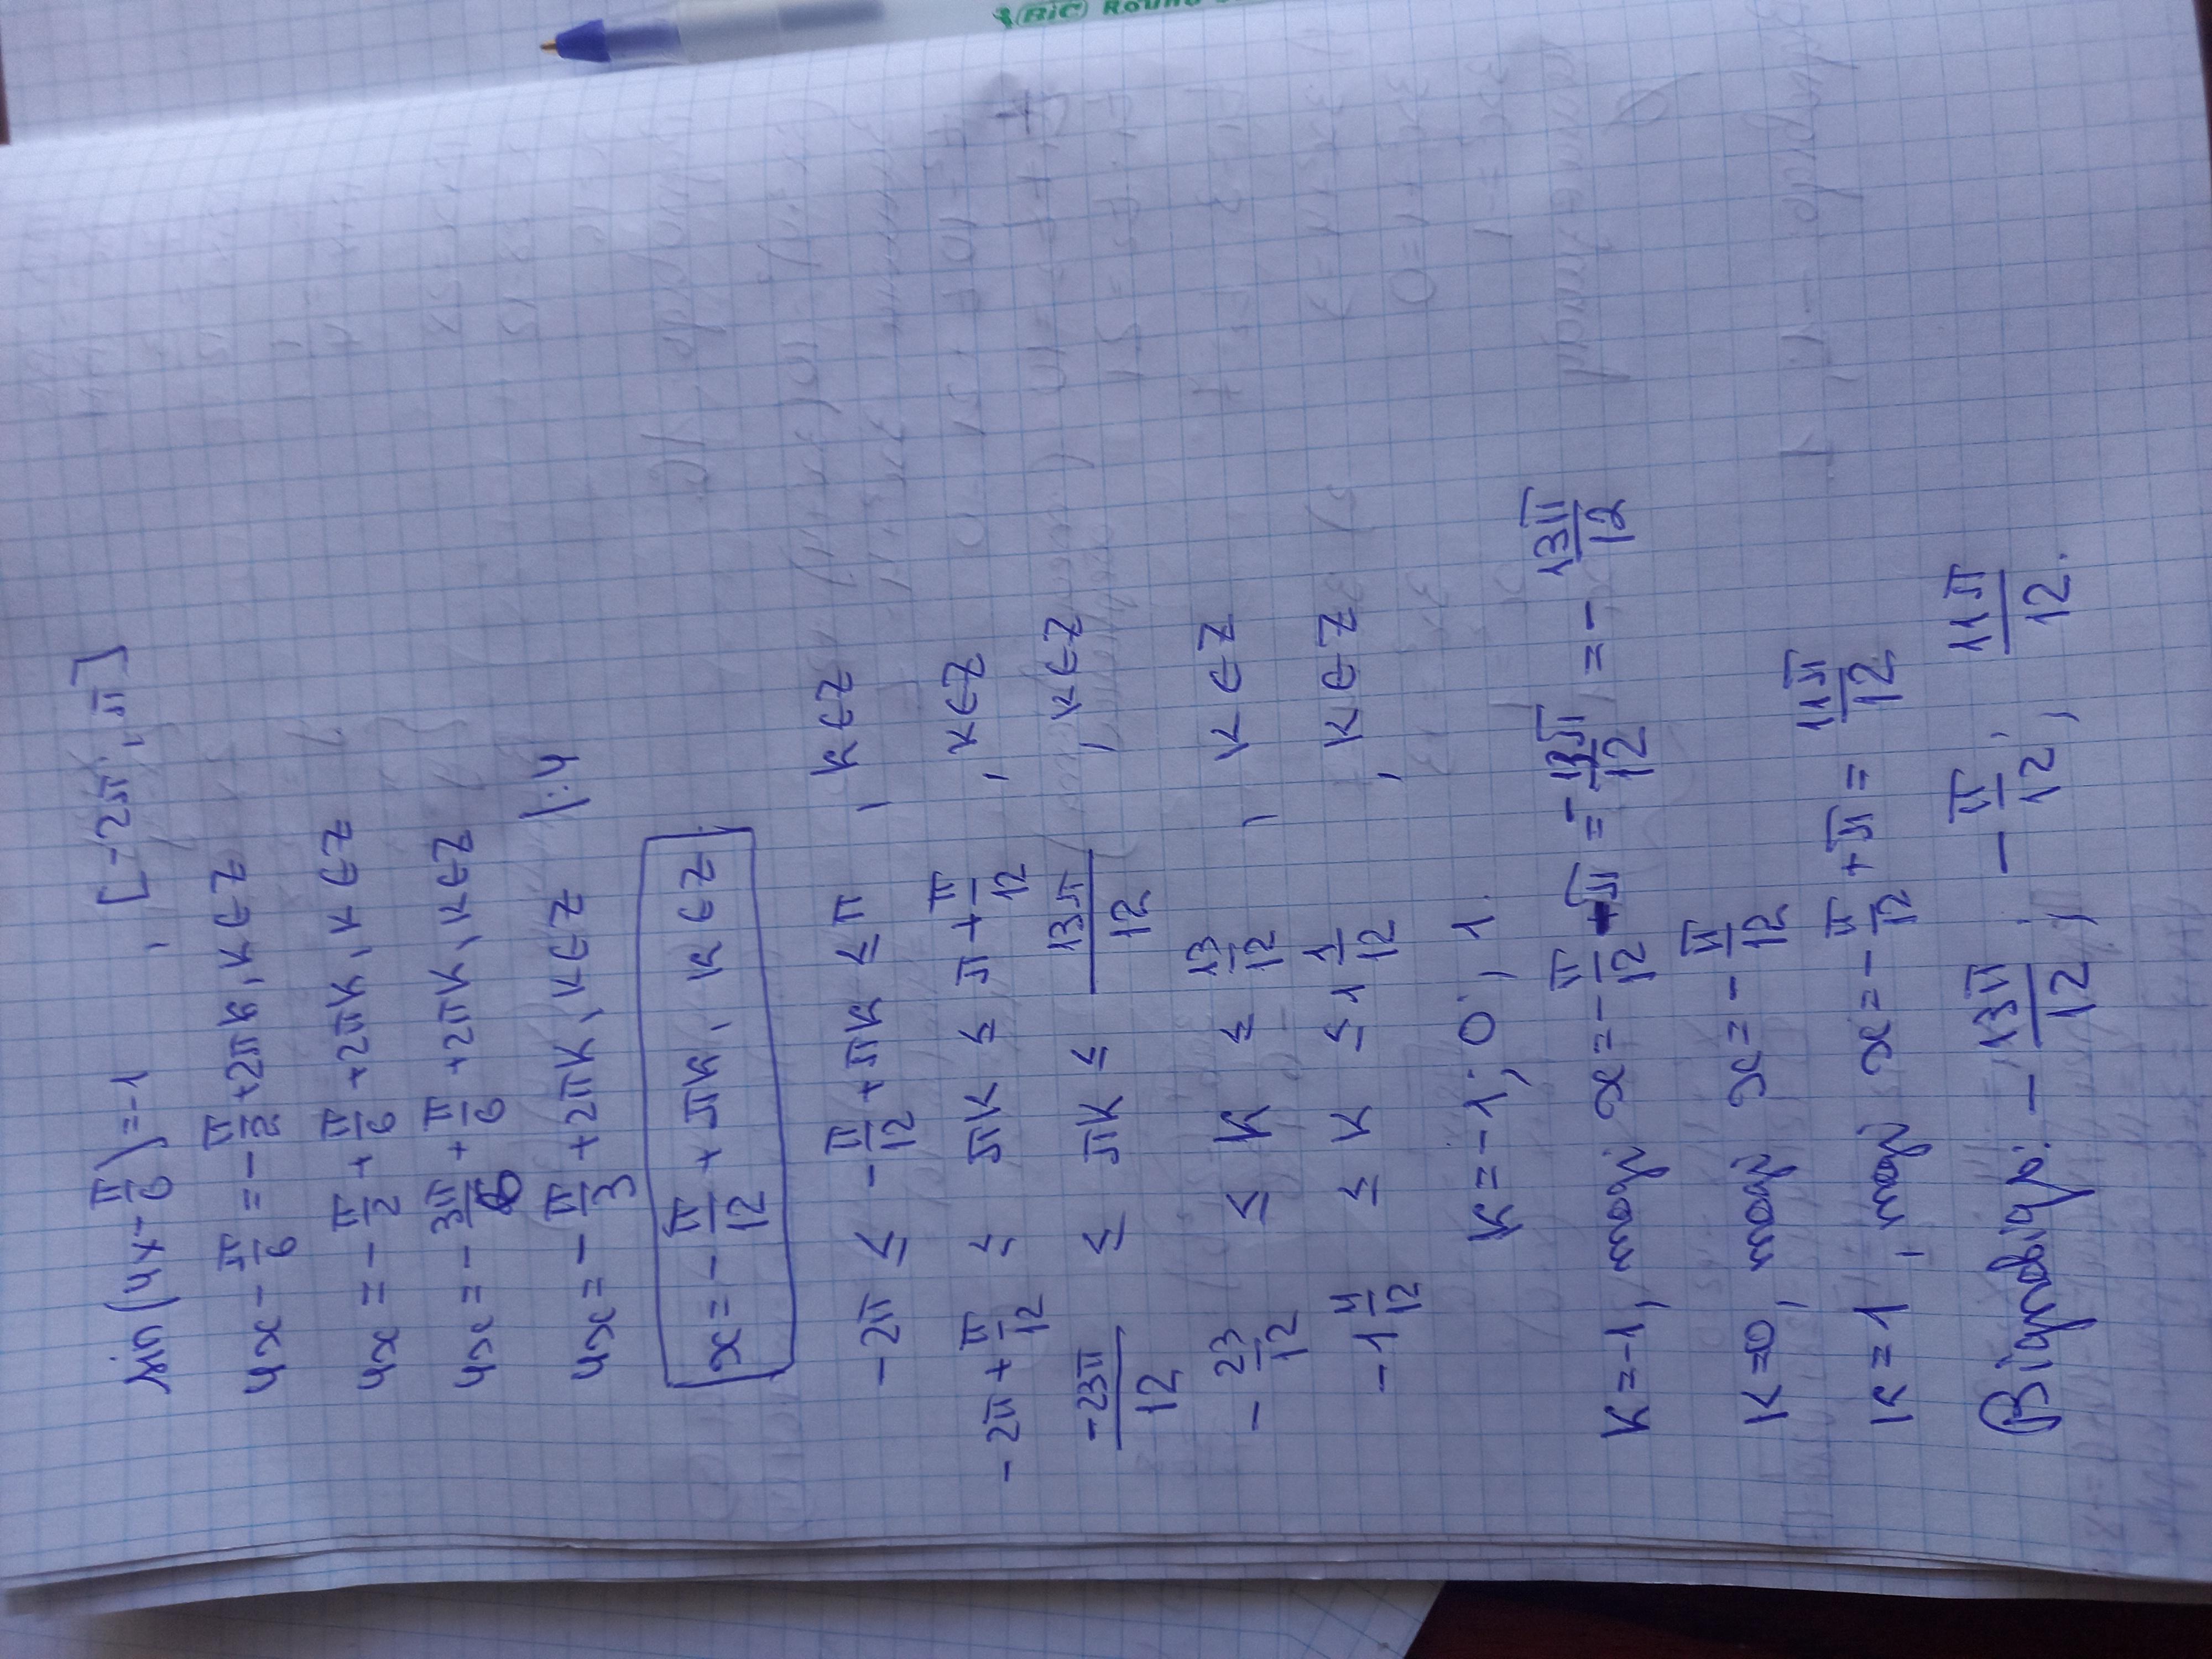 sin(4x-π/6)=-1 , [-2π; π]
4x-π/6=-π/2+2πk, k∈Z
4x=-π/2+π/6+2πk, k∈Z
4x=-3π/6+π/6+2πk, k∈Z
4x=-π/3+2πk, k∈Z |:4
x=-π/12+πk, k∈Z
-2π≤-π/12+πk≤π , k∈Z
-2π+π/12 ≤ πk ≤ π+π/12 , k∈Z
-23π/12 ≤ πk ≤ 13π/12 , k∈Z
-23/12 ≤ k ≤ 13/12 , k∈Z
-1 4/12 ≤ k ≤ 1 1/12 , k∈Z
k=-1; 0; 1.
k=-1, тоді x=-π/12-π=-13π/12=-13π/12
k=0, тоді x=-π/12
k=1, тоді x=-π/12+π=11π/12
Відповідь: -13π/12; -π/12; 11π/12.
(BIC) ROUND